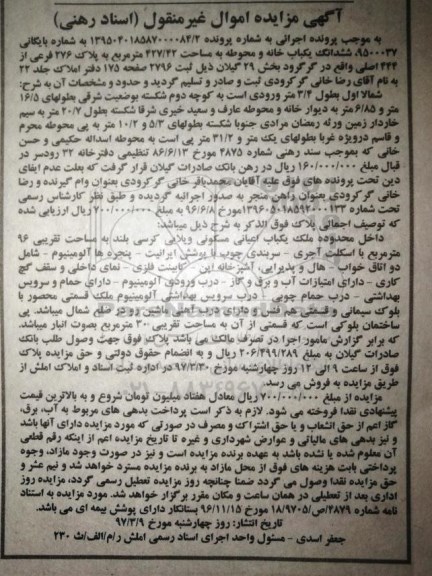 آگهی مزایده اموال غیرمنقول (اسناد رهنی)
به موجب پرونده اجرائی به شماره پرونده ۱۳۹۵۰۴۰۱۸۵۸۷۰۰۰۰۸۴/۲ به شماره بایگانی
۹۵۰۰۰۳۷، ششدانگ یکباب خانه و محوطه به مساحت ۴۲۷/۴۲ مترمربع به پلاک ۲۷۶ فرعی از
۴۴۴ اصلی واقع در گرگرود بخش ۲۹ گیلان ذیل ثبت ۲۷۹۶ صفحه ۱۷۵ دفتر املاک جلد ۲۲
به نام آقای رضا خانی گرکرودی ثبت و صادر و تسلیم گردید و حدود و مشخصات آن به شرح:
شمالا اول بطول ۳/۴ متر ورودی است به کوچه دوم شکسته بوضعیت شرقی بطولهای ۱۶/۵
متر و ۶/۸۵ متر به دیوار خانه و محوطه عارف و سعید خیری شرقا شکسته بطول ۲۰/۷ متر به سیم
خاردار زمین ورثه رمضان مرادی جنوبا شکسته بطولهای ۵/۳ و ۱۰/۲ متر به پی محوطه محرم
و قاسم درویژه غربا بطولهای یک متر و ۳۱/۲ متر پی است به محوطه اسداله حکیمی و حسن
خانی که بموجب سند رهنی شماره ۴۸۷۵ مورخ ۸۶/۶/۱۳ تنظیمی دفترخانه ۳۲ رودسر در
قبال مبلغ ۱۶۰/۰۰۰/۰۰۰ ریال در رهن بانک صادرات گیلان قرار گرفت که بعلت عدم ایفای
دین تحت پرونده های فوق علیه آقایان محمدباقر خانی گرکرودی بعنوان وام گیرنده و رضا
خانی گرکرودی بعنوان راهن منجر به صدور اجرائیه گردیده و طبق نظر کارشناس رسمی
تحت شماره ۱۳۹۶۰۵۰۱۸۵۹۲۰۰۰۱۳۳ مورخ ۹۶/۶/۸ به مبلغ ۷۰۰/۰۰۰/۰۰۰ ریال ارزیابی شده
که توصیف اجمالی پلاک فوق الذکر به شرح ذیل میباشد:
داخل محدوده ملک یکباب اعیانی مسکونی ویلایی کرسی بلند به مساحت تقریبی ۹۶
مترمربع با اسکلت آجری - سربندی چوب با پوشش ایرانیت - پنجره ها آلومینیوم - شامل
دو اتاق خواب - هال و پذیرایی، آشپزخانه اپن - کابینت فلزی - نمای داخلی و سقف گچ
کاری - دارای امتیازات آب و برق و گاز - درب ورودی آلومینیوم - دارای حمام و سرویس
بهداشتی - درب حمام چوبی - درب سرویس بهداشتی آلومینیوم ملک قسمتی محصور با
بلوک سیمانی و قسمتی هم فنس و دارای درب آهنی ماشین رو در ضلع شمال میباشد. پی
ساختمان بلوکی است که قسمتی از آن به مساحت تقریبی ۳۰ مترمربع بصورت انبار میباشد.
که برابر گزارش مامور اجرا در تصرف مالک می باشد پلاک فوق جهت وصول طلب بانک
صادرات گیلان به مبلغ ۲۰۶/۴۹۹/۲۸۹ ریال و به انضمام حقوق دولتی و حق مزایده پلاک
فوق از ساعت ۹ الی ۱۲ روز چهارشنبه مورخ ۹۷/۳/۳۰ در اداره ثبت اسناد و املاک املش از
طریق مزایده به فروش می رسد.
مزایده از مبلغ ۷۰۰/۰۰۰/۰۰۰ ریال معادل هفتاد میلیون تومان شروع و به بالاترین قیمت
پیشنهادی نقدا فروخته می شود. لازم به ذکر است پرداخت بدهی های مربوط به آب، برق،
گاز اعم از حق انشعاب و یا حق اشتراک و مصرف در صورتی که مورد مزایده دارای آنها باشد
و نیز بدهی های مالیاتی و عوارض شهرداری و غیره تا تاریخ مزایده اعم از اینکه رقم قطعی
آن معلوم شده یا نشده باشد به عهده برنده مزایده است و نیز در صورت وجود مازاد، وجوه
پرداختی بابت هزینه های فوق از محل مازاد به برنده مزایده مسترد خواهد شد و نیم عشر و
حق مزایده نقدا وصول می گردد ضمنا چنانچه روز مزایده تعطیل رسمی گردد، مزایده روز
اداری بعد از تعطیلی در همان ساعت و مکان مقرر برگزار خواهد شد. مورد مزایده به استناد
نامه شماره ۱۸/۹۷۰۵/ص/۲۸۷۹ مورخ ۹۶/۱۱/۱۵ بستانکار دارای پوشش بیمه ای می باشد.
تاریخ انتشار: روز چهارشنبه مورخ ۹۷/۳/۹
جعفر اسدی - مسئول واحد اجرای اسناد رسمی املش ر/م/الف/ث ۲۳۰